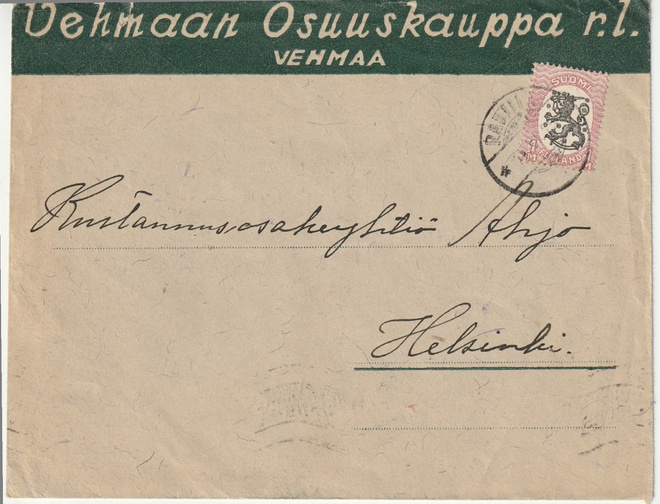 Vehmaan Osuuskauppa r.l.
VEHMAA
SUOMI
Kustannusosakeyhtiö Ahjo
Helsinki.